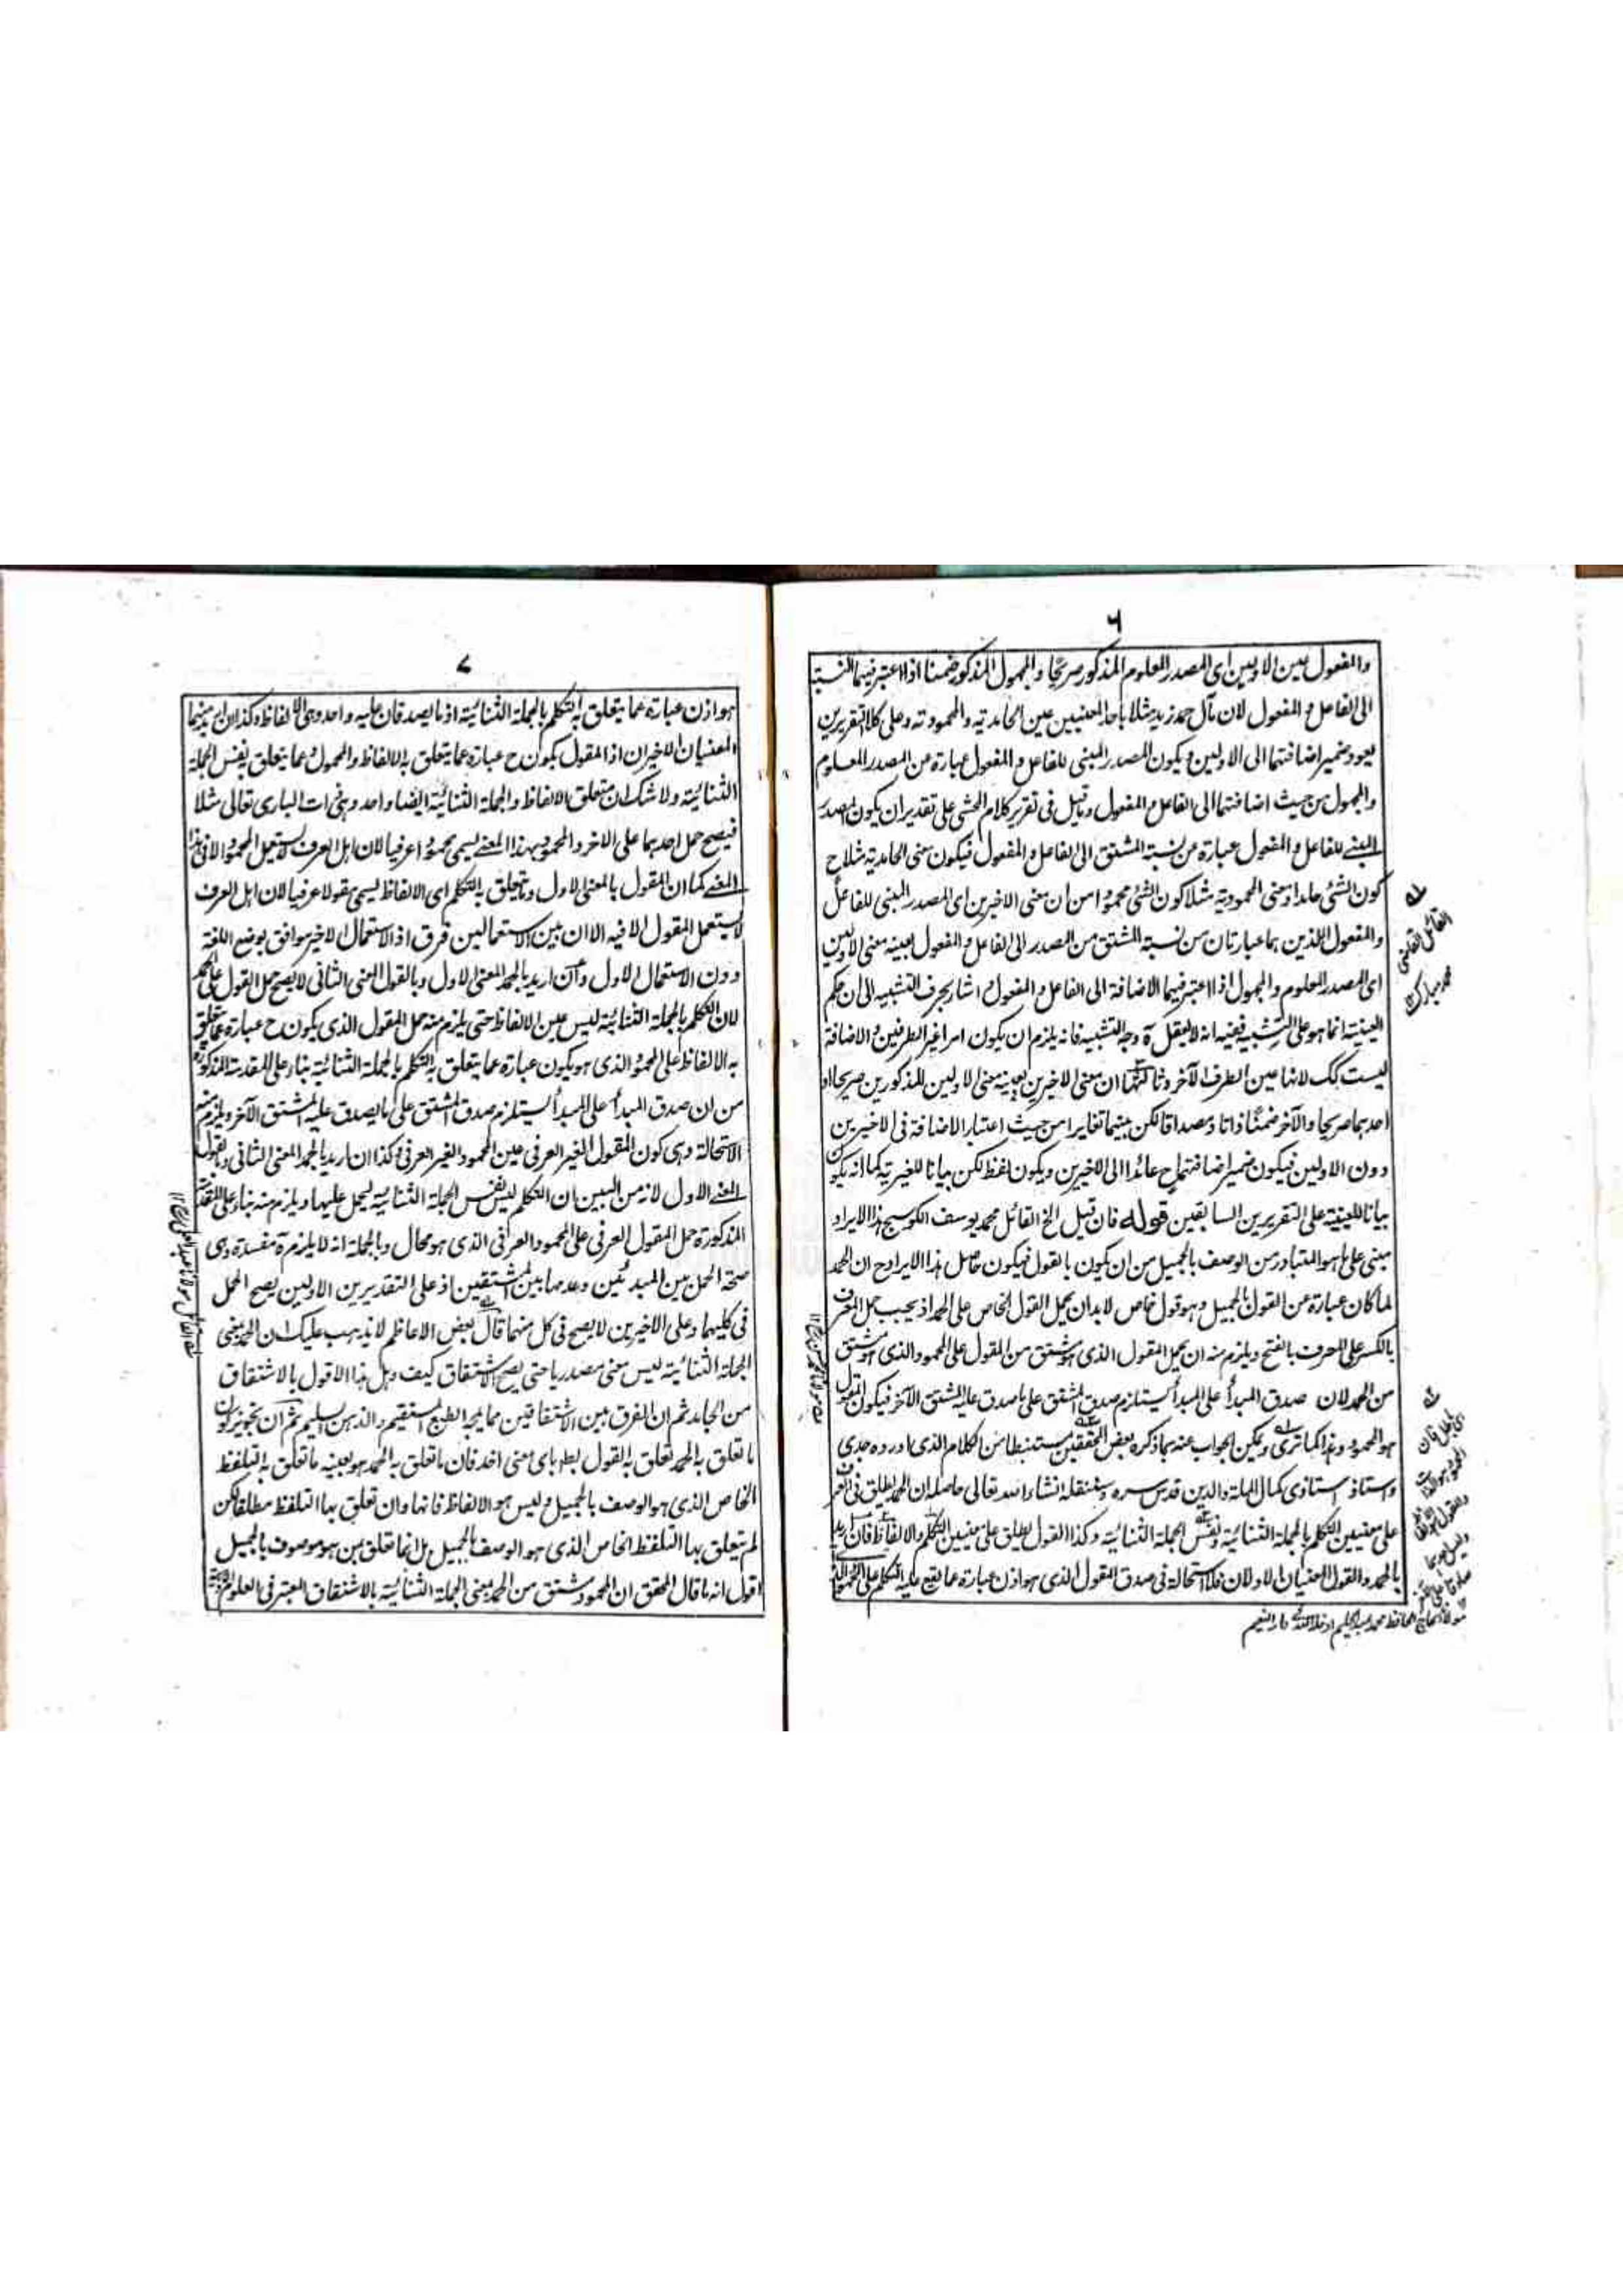 ٦
والمفعول عين الاولين اى المصدر المعلوم المذكور صريحا والمجهول المذكور ضمنا اذا اعتبر فيهما النسبة
الى الفاعل والمفعول لان مآل حمد زيد مثلا باحد المعنيين عين الحامدية والمحمودية وعلى كلا التقريرين
يعود ضمير اضافتهما الى الاولين ويكون المصدر المبنى للفاعل والمفعول عبارة عن المصدر المعلوم
والمجهول من حيث اضافتهما الى الفاعل والمفعول وما قيل فى تقرير كلام المحشى على تقدير ان يكون المصدر
المبنى للفاعل والمفعول عبارة عن نسبة المشتق الى الفاعل والمفعول فيكون معنى الحامدية مثلا ح
كون الشئ حامدا ومعنى المحمودية مثلا كون الشئ محمودا من ان معنى الاخيرين اى المصدر المبنى للفاعل
والمفعول اللذين هما عبارتان من نسبة المشتق من المصدر الى الفاعل والمفعول بعينه معنى الاولين
اى المصدر المعلوم والمجهول اذا اعتبر فيهما الاضافة الى الفاعل والمفعول واشار بحرف التشبيه الى ان حكم
العينية انما هو على التشبيه ففيه انه لا يعقل ة وجه التشبيه فانه يلزم ان يكون امرا غير الطرفين والاضافة
ليست كك لانها عين الطرف الآخر وثالثها ان معنى الاخيرين بعينه معنى الاولين المذكورين صريحا او
احدهما صريحا والآخر ضمنا ذاتا ومصداقا لكن بينهما تغايرا من حيث اعتبار الاضافة فى الاخيرين
دون الاولين فيكون ضمير اضافتهما ح عائدا الى الاخيرين ويكون لفظ لكن بيانا للغيرية كما انه يكون
بيانا للعينية على التقريرين السابقين قوله فان قيل الخ القائل محمد يوسف الكوسج هذا الايراد
مبنى على ما هو المتبادر من الوصف بالجميل من ان يكون بالقول فيكون حاصل هذا الايراد ح ان الحمد
لما كان عبارة عن القول بالجميل وهو قول خاص لابد ان يحمل القول الخاص على الحمد اذ يجب حمل المعرف
بالكسر على المعرف بالفتح ويلزم منه ان يحمل المقول الذى هو مشتق من القول على المحمود الذى هو مشتق
من الحمد لان صدق المبدأ على المبدأ يستلزم صدق المشتق على ما صدق عليه المشتق الآخر فيكون المقول
هو المحمود وهذا كما ترى ويمكن الجواب عنه بما ذكره بعض المحققين مستنبطا من الكلام الذى اورده جدى
واستاذ استاذى كمال الملة والدين قدس سره وسننقله انشاء الله تعالى حاصله ان الحمد يطلق فى العرف
على معنيين التكلم بالجملة الثنائية ونفس الجملة الثنائية وكذا القول يطلق على معنيين التكلم والالفاظ فان اريد
بالحمد والقول المعنيان الاولان فلا استحالة فى صدق المقول الذى هو اذن عبارة عما يقع عليه التكلم على المحمود الذى
القائل القاضى
محمد مبارك
مولانا الحاج الحافظ محمد عبد الحليم ادخله الله دار النعيم
٧
هو اذن عبارة عما يتعلق به التكلم بالجملة الثنائية اذ ما يصدقان عليه واحد وهى الالفاظ وكذا ان اريد منهما
المعنيان الاخيران اذ المقول يكون ح عبارة عما يتعلق به الالفاظ والمحمول عما يتعلق بنفس الجملة
الثنائية ولا شك ان متعلق الالفاظ والجملة الثنائية ايضا واحد وهى ذات البارى تعالى مثلا
فيصح حمل احدهما على الاخر والمحمود بهذا المعنے يسمى محمودا عرفيا لان اهل العرف لا يستعمل المحمود الا فى هذا
المعنے كما ان المقول بالمعنى الاول وما يتعلق به التكلم اى الالفاظ يسمى مقولا عرفيا لان اهل العرف
لا يستعمل المقول الا فيه الا ان بين الاستعمالين فرق اذ الاستعمال الاخير موافق بوضع اللغة
دون الاستعمال الاول وان اريد بالحمد المعنى الاول وبالقول المعنى الثانى لا يصح حمل القول على الحمد
لان التكلم بالجملة الثنائية ليس عين الالفاظ حتى يلزم منه حمل المقول الذى يكون ح عبارة عما يتعلق
به الالفاظ على المحمود الذى هو يكون عبارة عما يتعلق به التكلم بالجملة الثنائية بناء على المقدمة المذكورة
من ان صدق المبدأ على المبدأ يستلزم صدق المشتق على ما يصدق عليه المشتق الآخر ويلزم منه
الاستحالة وهى كون المقول الغير العرفى عين المحمود الغير العرفى وكذا ان اريد بالحمد المعنى الثانى وبالقول
المعنے الاول لانه من البين ان التكلم ليس نفس الجملة الثنائية ليحمل عليها ويلزم منه بناء على المقدمة
المذكورة حمل المقول العرفى على المحمود العرفى الذى هو محال وبالجملة انه لا يلزم ة مفسدة وهى
صحة الحمل بين المبدئين وعدمها بين المشتقين اذ على التقديرين الاولين يصح الحمل
فى كليهما وعلى الاخيرين لا يصح فى كل منهما قال بعض الاعاظم لا يذهب عليك ان الحمد بمعنى
الجملة الثنائية ليس معنى مصدريا حتى يصح الاشتقاق كيف وهل هذا الا قول بالاشتقاق
من الجامد ثم ان الفرق بين الاشتقاقين مما يمجه الطبع المستقيم والذهن السليم ثم ان تجويز كون
ما تعلق به الحمد تعلق به القول بط باى معنى اخذ فان ما تعلق به الحمد هو بعينه ما تعلق به التلفظ
الخاص الذى هو الوصف بالجميل وليس هو الالفاظ فانها وان تعلق بها التلفظ مطلقا لكن
لم يتعلق بها التلفظ الخاص الذى هو الوصف بالجميل بل انما تعلق بمن هو موصوف بالجميل
اقول انه ما قال المحقق ان المحمود مشتق من الحمد بمعنى الجملة الثنائية بالاشتقاق المعتبر فى العلوم